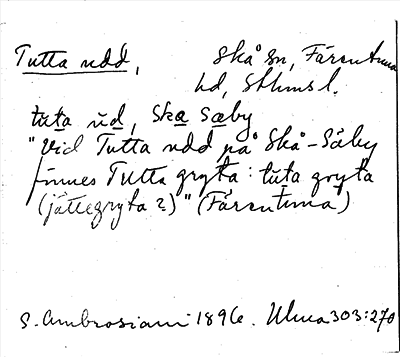 Tutta udd, Skå sn, Färentuna
hd, Sthms l.
tuta ud, Ska Sæby
"Vid Tutta udd på Skå-Säby
finnes Tutta gryta: tuta gryta
(jättegryta?)" (Färentuna)
S. Ambrosiani 1896. Ulma 303:270